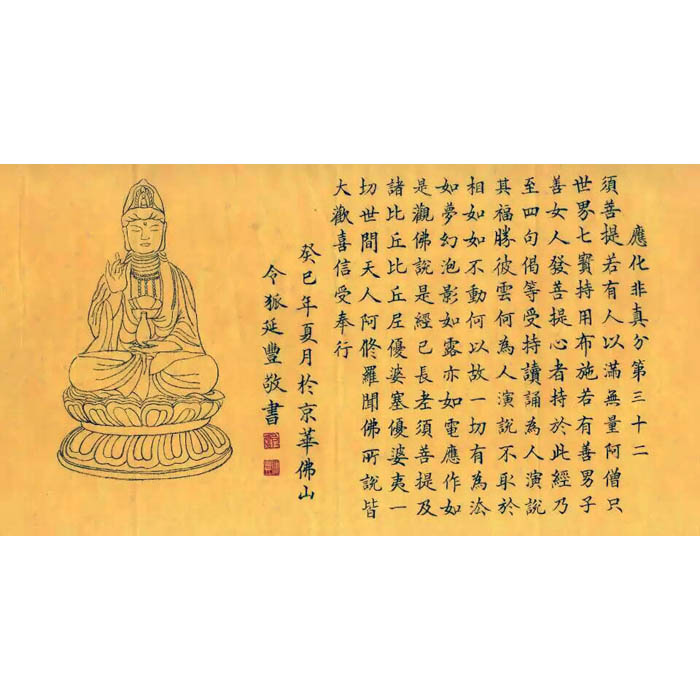 應化非真分第三十二
須菩提若有人以滿無量阿僧只
世界七寳持用布施若有善男子
善女人發菩提心者持於此經乃
至四句偈等受持讀誦為人演說
其福勝彼雲何為人演說不取於
相如如不動何以故一切有為法
如夢幻泡影如露亦如電應作如
是觀佛說是經已長老須菩提及
諸比丘比丘尼優婆塞優婆夷一
切世間天人阿修羅聞佛所說皆
大歡喜信受奉行
癸巳年夏月於京華佛山
令狐延豐敬書